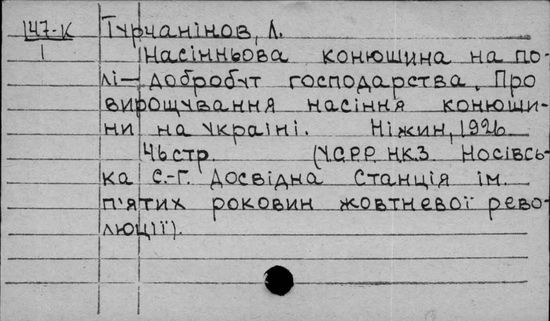 147-К Турчанінов, Л.
1 Насінньова конюшина на по-
лі — добробут господарства. Про
вирощування насіння конюши-
ни на Україні. Ніжин, 1926
46 стр. (У.С.Р.Р. НК.З. Носівсь-
ка С.-Г. Досвідна Станція ім.
п'ятих роковин жовтневої рево-
люції).